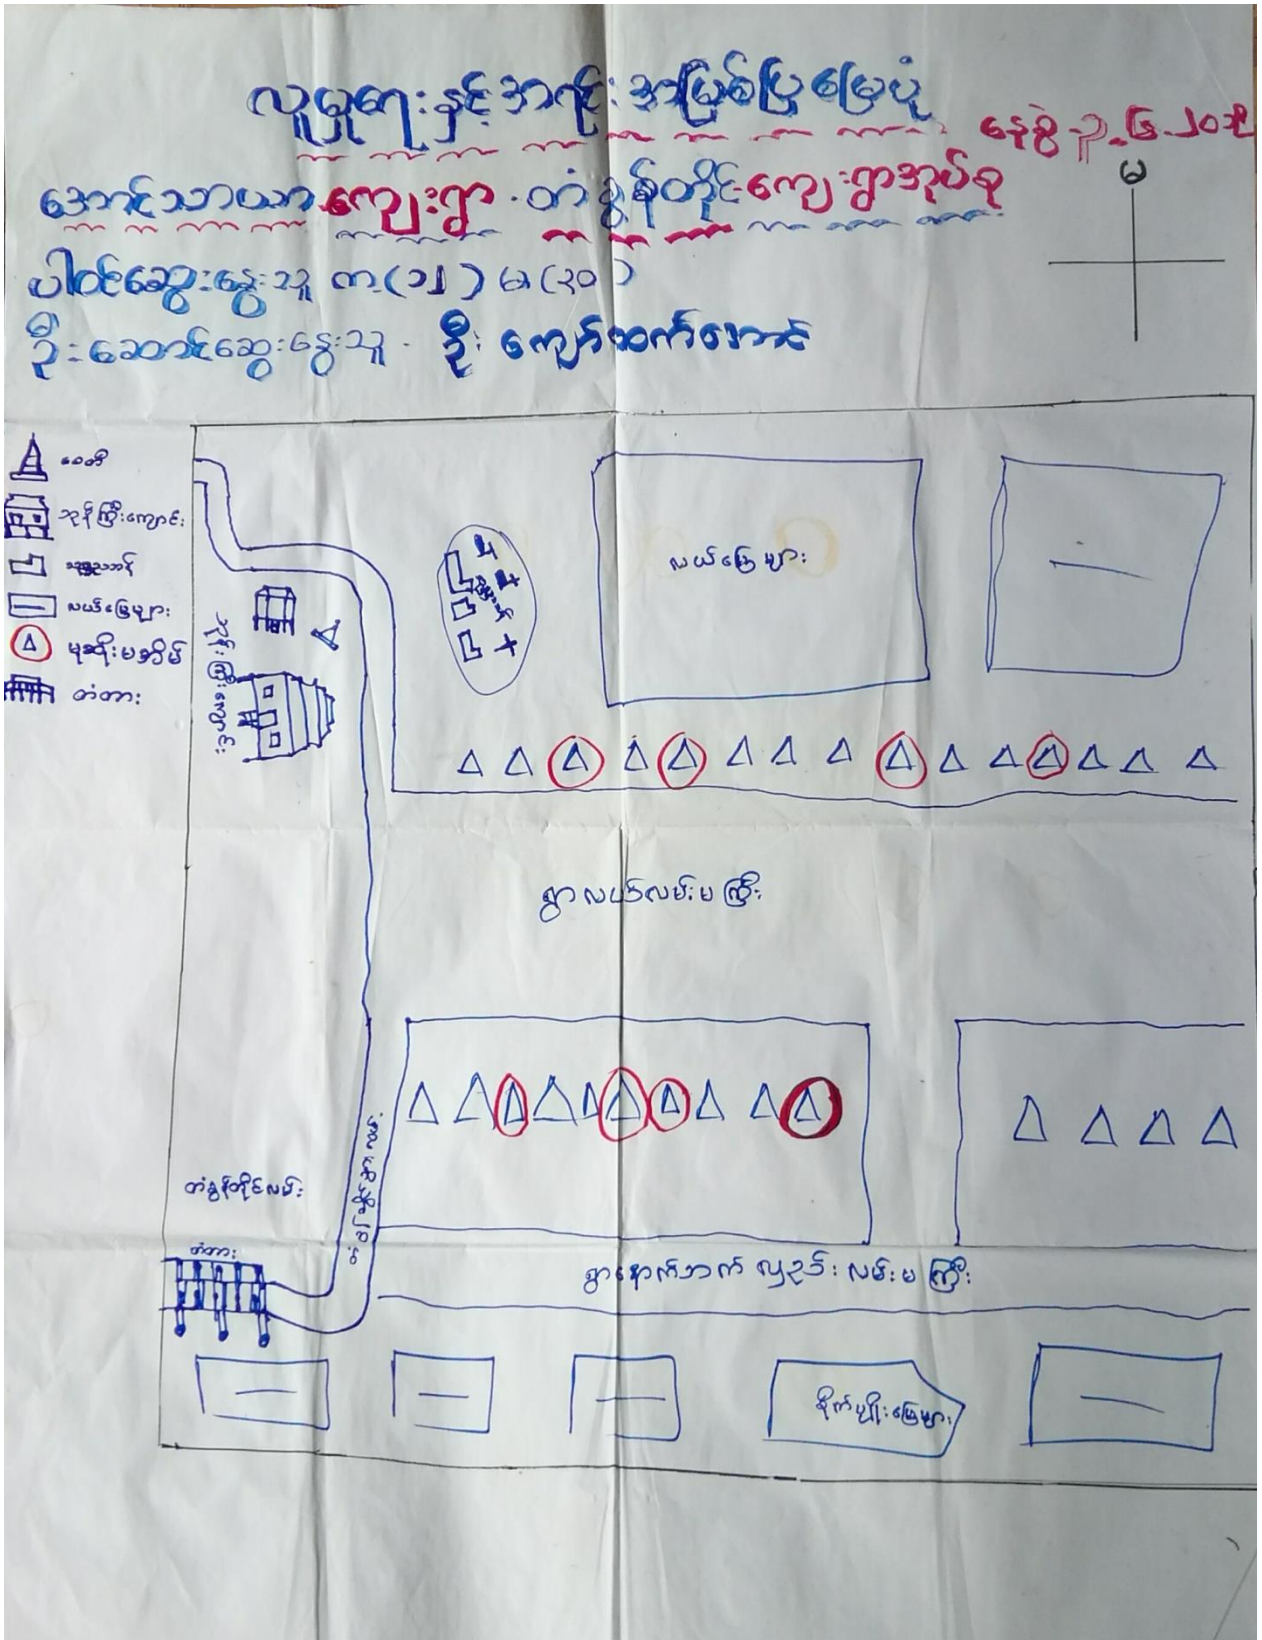 လူမှုရေးနှင့်အရင်းအမြစ်ပြမြေပုံ
နေ့စွဲ
မ
အောင်သာယာကျေးရွာ . တံခွန်တိုင်ကျေးရွာအုပ်စု
ပါဝင်ဆွေးနွေးသူ ကျ(၁၂) မ(၃၀)
ဦးဆောင်ဆွေးနွေးသူ . ဦးကျော်ထက်အောင်
စေတီ
ဘုန်ကြီးကျောင်း
သုဿာန်
လယ်မြေများ
မုဆိုးမအိမ်
တံတား
ဘုန်းကြီးကျောင်း
လယ်မြေများ
ရွာလယ်လမ်းမကြီး
တံခွန်တိုင်လမ်း
တံတား
ရွာနောက်ဘက် လှည်း လမ်းမကြီး
စိုက်ပျိုးမြေများ